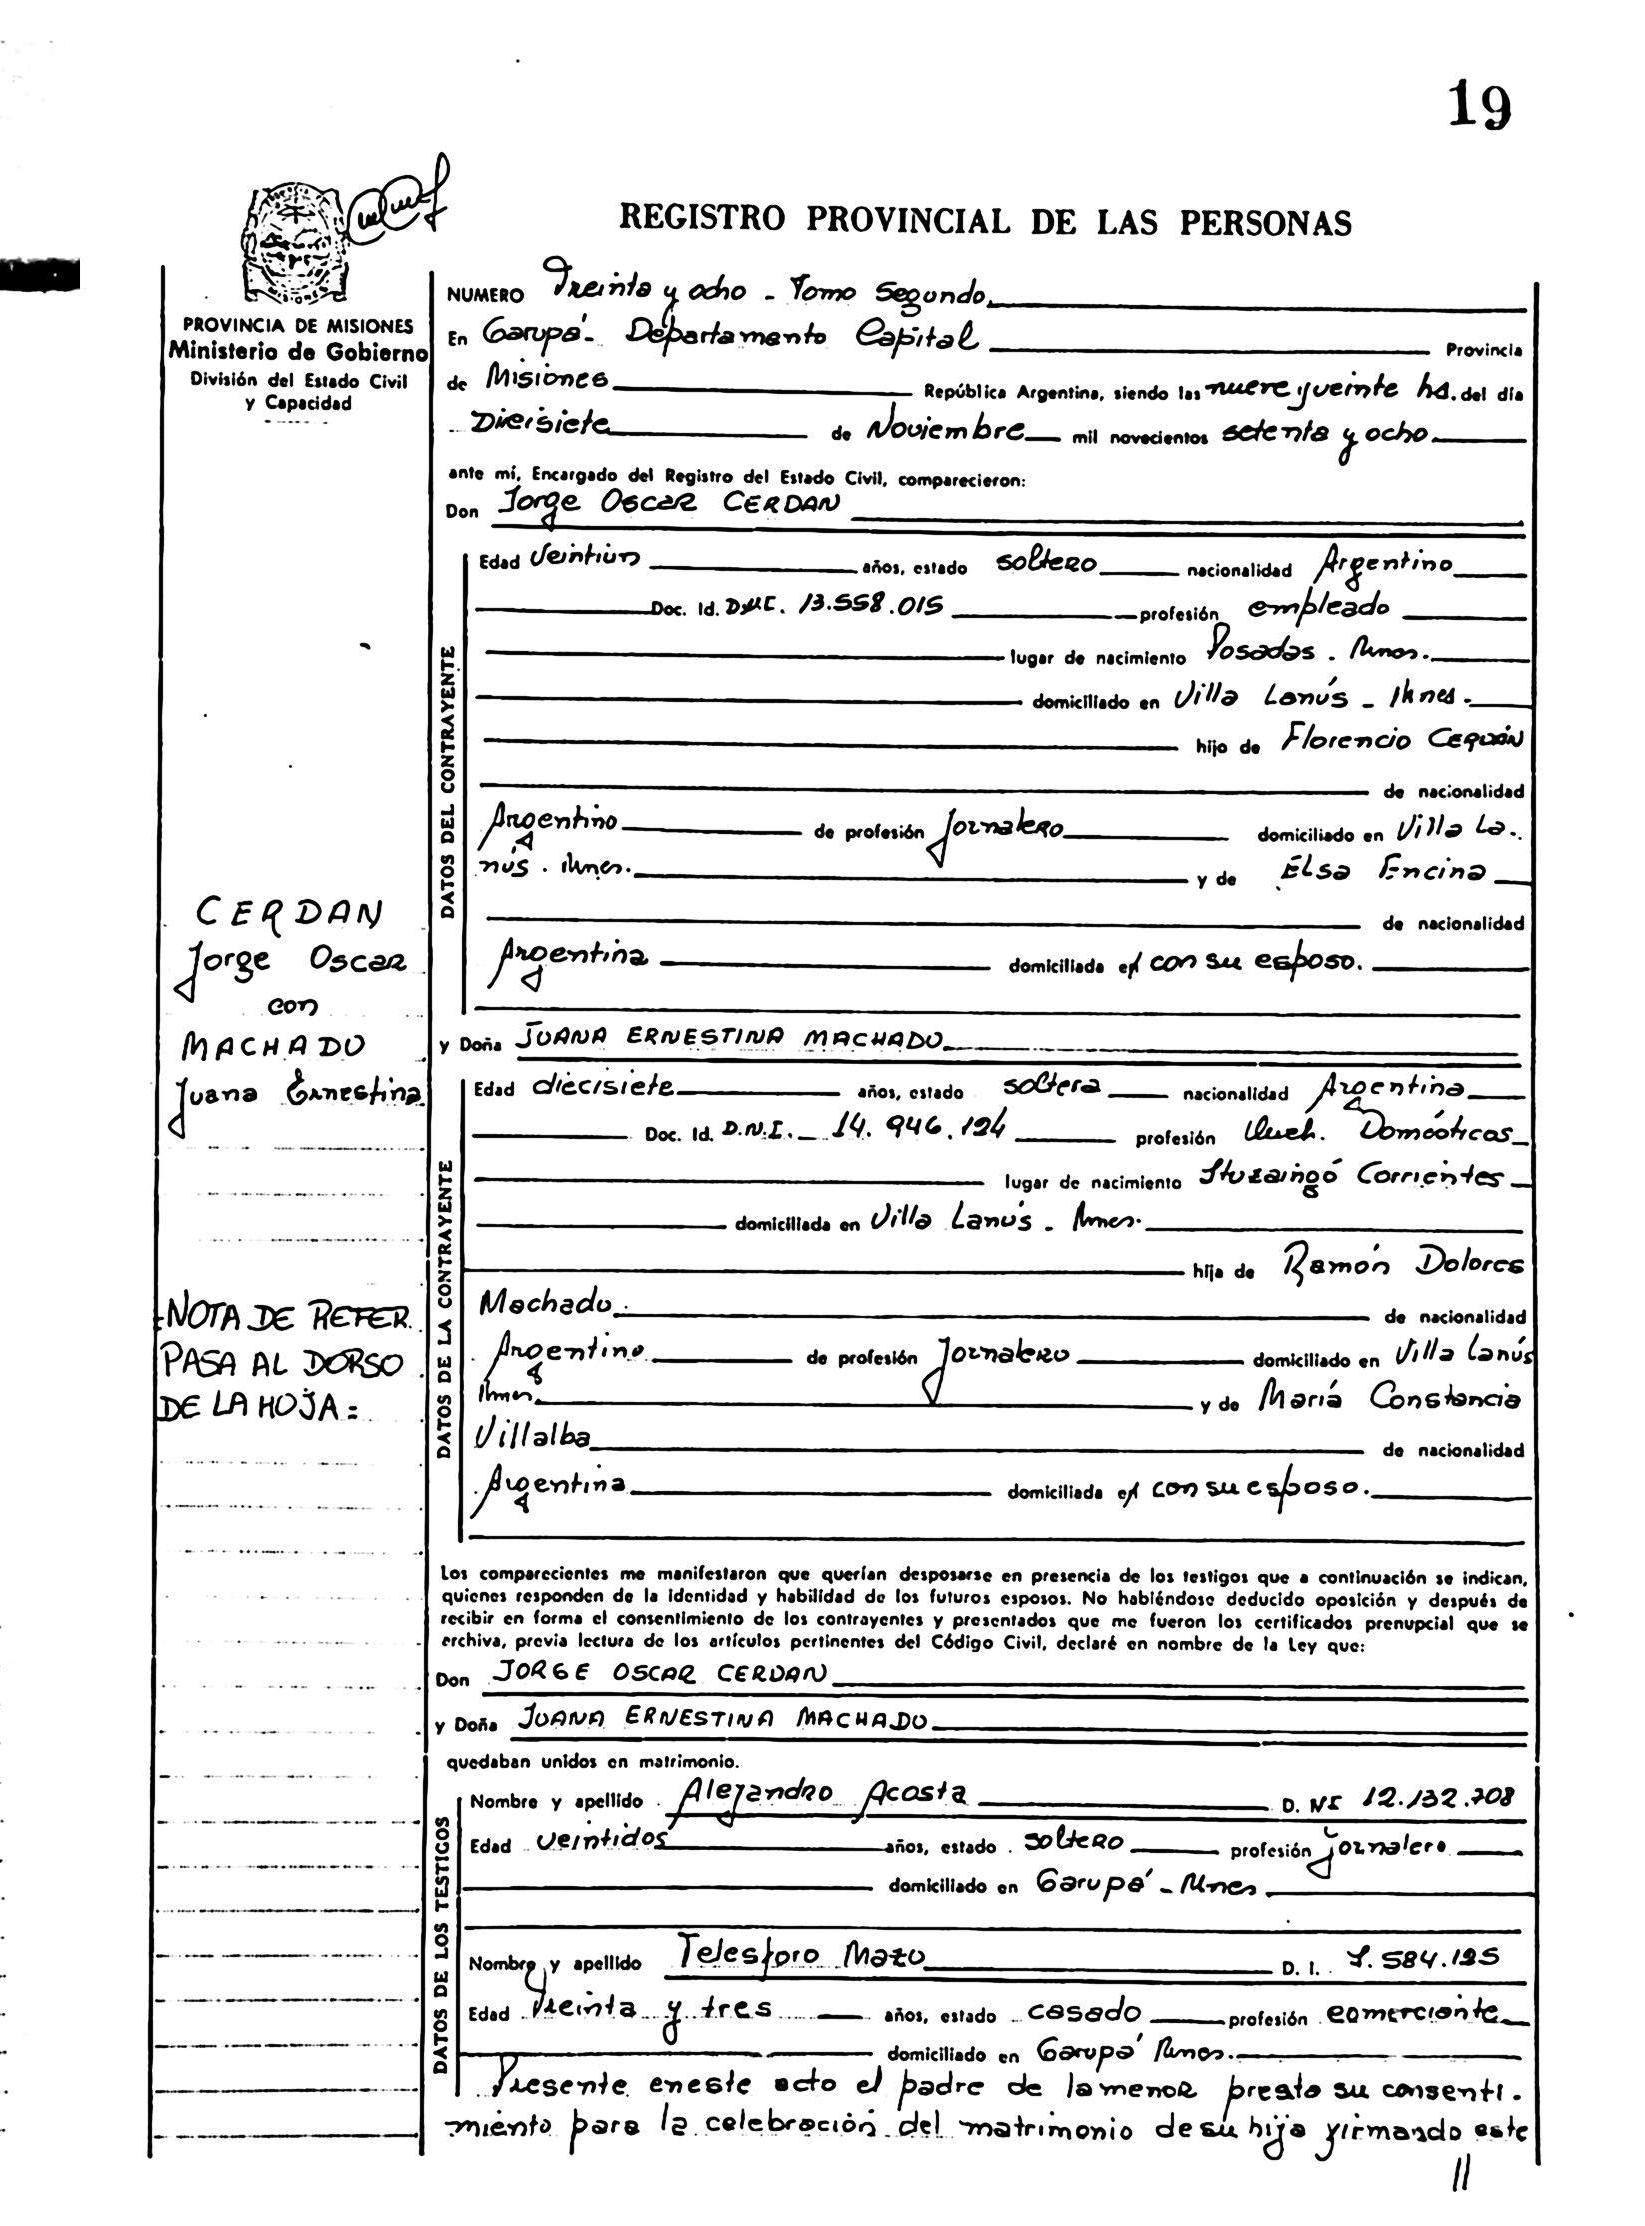 19
REGISTRO PROVINCIAL DE LAS PERSONAS
PROVINCIA DE MISIONES
Ministerio de Gobierno
División del Estado Civil
y Capacidad
NUMERO Treinta y ocho - Tomo Segundo
En Garupá - Departamento Capital Provincia
de Misiones República Argentina, siendo las nueve y veinte hs. del día
Diecisiete de Noviembre mil novecientos setenta y ocho
ante mí, Encargado del Registro del Estado Civil, comparecieron:
Don Jorge Oscar CERDAN
DATOS DEL CONTRAYENTE
Edad Veintiun años, estado soltero nacionalidad Argentino
Doc. Id. 13.558.015 profesión empleado
lugar de nacimiento Posadas. Mnes.
domiciliado en Villa Lanús - Mnes.
hijo de Florencio CERDÁN
de nacionalidad
Argentino de profesión Jornalero domiciliado en Villa La-
nús. Mnes. y de Elsa Encina
de nacionalidad
Argentina domiciliada en con su esposo.
CERDAN
Jorge Oscar
con
MACHADO
Juana Ernestina
NOTA DE REFER.
PASA AL DORSO
DE LA HOJA=
y Doña JUANA ERNESTINA MACHADO
DATOS DE LA CONTRAYENTE
Edad diecisiete años, estado soltera nacionalidad Argentina
Doc. Id. D.N.I. - 14.946.124 profesión Domésticos
lugar de nacimiento Ituzaingó Corrientes
domiciliada en Villa Lanús - Mnes.
hija de Ramón Dolores
Machado. de nacionalidad
Argentino de profesión Jornalero domiciliado en Villa Lanús
Mnes. y de María Constancia
Villalba de nacionalidad
Argentina domiciliada en con su esposo.
Los comparecientes me manifestaron que querían desposarse en presencia de los testigos que a continuación se indican,
quienes responden de la identidad y habilidad de los futuros esposos. No habiéndose deducido oposición y después de
recibir en forma el consentimiento de los contrayentes y presentados que me fueron los certificados prenupcial que se
archiva, previa lectura de los artículos pertinentes del Código Civil, declaré en nombre de la Ley que:
Don JORGE OSCAR CERDAN
y Doña JUANA ERNESTINA MACHADO
quedaban unidos en matrimonio.
DATOS DE LOS TESTIGOS
Nombre y apellido Alejandro Acosta D. NI 12.132.708
Edad veintidos años, estado soltero profesión jornalero
domiciliado en Garupá - Mnes
Nombre y apellido Telesforo Mazo D. I. 7.584.125
Edad Treinta y tres años, estado casado profesión comerciante
domiciliado en Garupá Mnes.
Presente en este acto el padre de la menor presta su consenti-
miento para la celebración del matrimonio de su hija firmando este
//